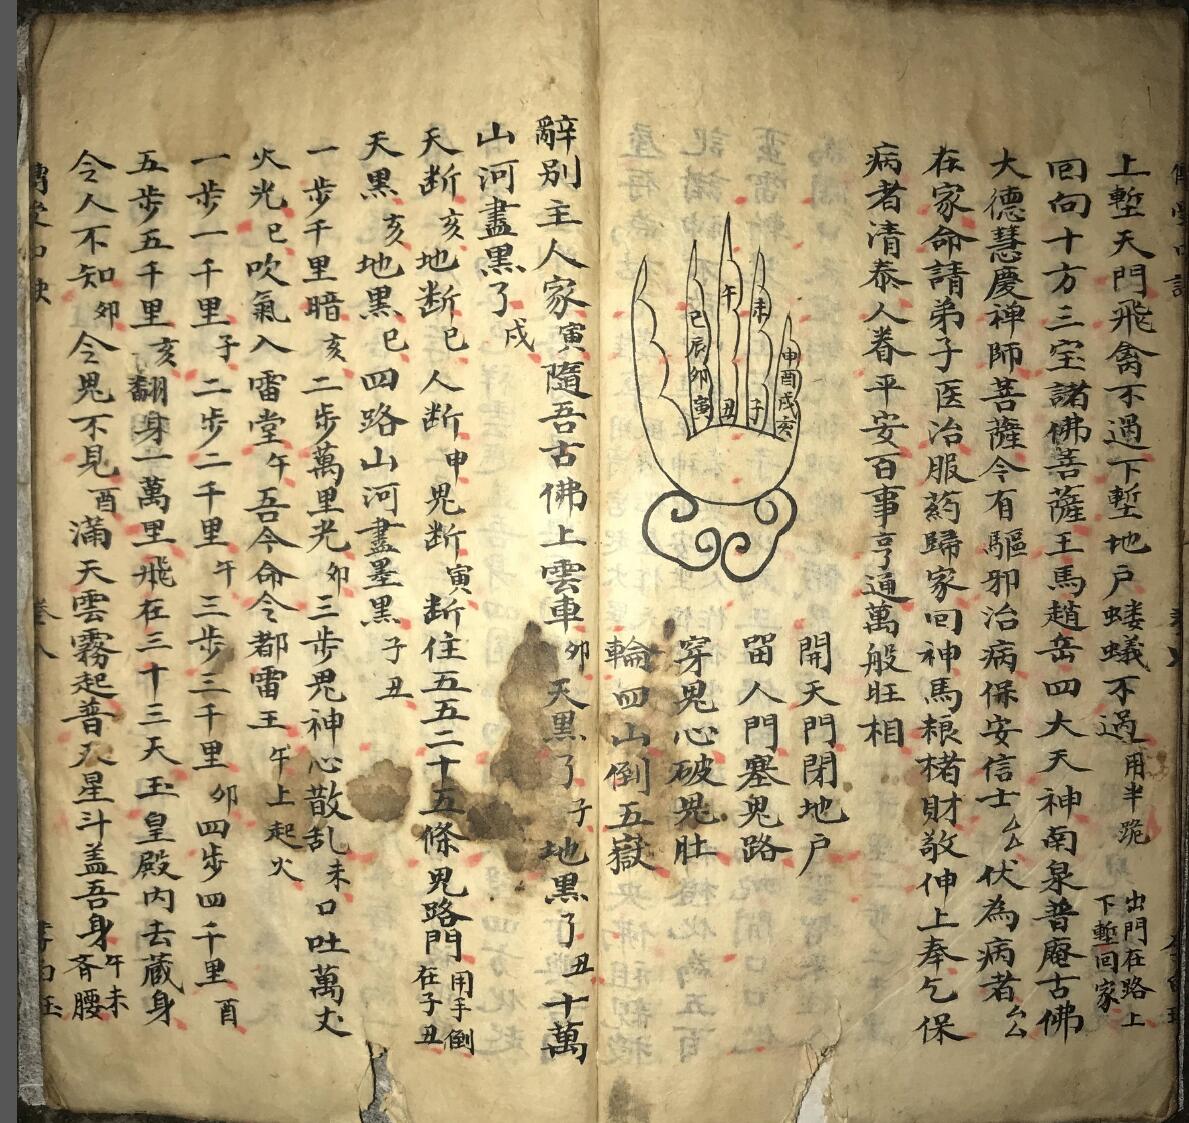 上塹天門飛禽不過下塹地户蝼蟻不過用半跪
出門在路上
下塹回家
回向十方三宝諸佛菩薩王馬趙岳四大天神南泉普庵古佛
大德慧慶禅師菩薩今有驅邪治病保安信士厶厶伏為病者厶厶
在家命請弟子医治服药歸家回神馬粮楮財敬伸上奉乞保
病者清泰人眷平安百事亨通萬般旺相
開天門閉地户
留人門塞鬼路
穿鬼心破鬼肚
輪四山倒五嶽
午
未
巳辰卯寅
丑
子
申酉戌亥
辭别主人家寅隨吾古佛上雲車卯天黑了子地黑了丑十萬
山河盡黑了戌
天断亥地断巳人断申鬼断寅断住五五二十五條鬼路門用手倒
在子丑
天黑亥地黑巳四路山河盡墨黑子丑
一步千里暗亥二步萬里光卯三步鬼神心散乱未口吐萬丈
火光巳吹氣入雷堂午吾今命令都雷王午上起火
一步一千里子二步二千里午三步三千里卯四步四千里酉
五步五千里亥翻身一萬里飛在三十三天玉皇殿内去藏身
令人不知卯令鬼不見酉滿天雲霧起普天星斗盖吾身午未
斉腰